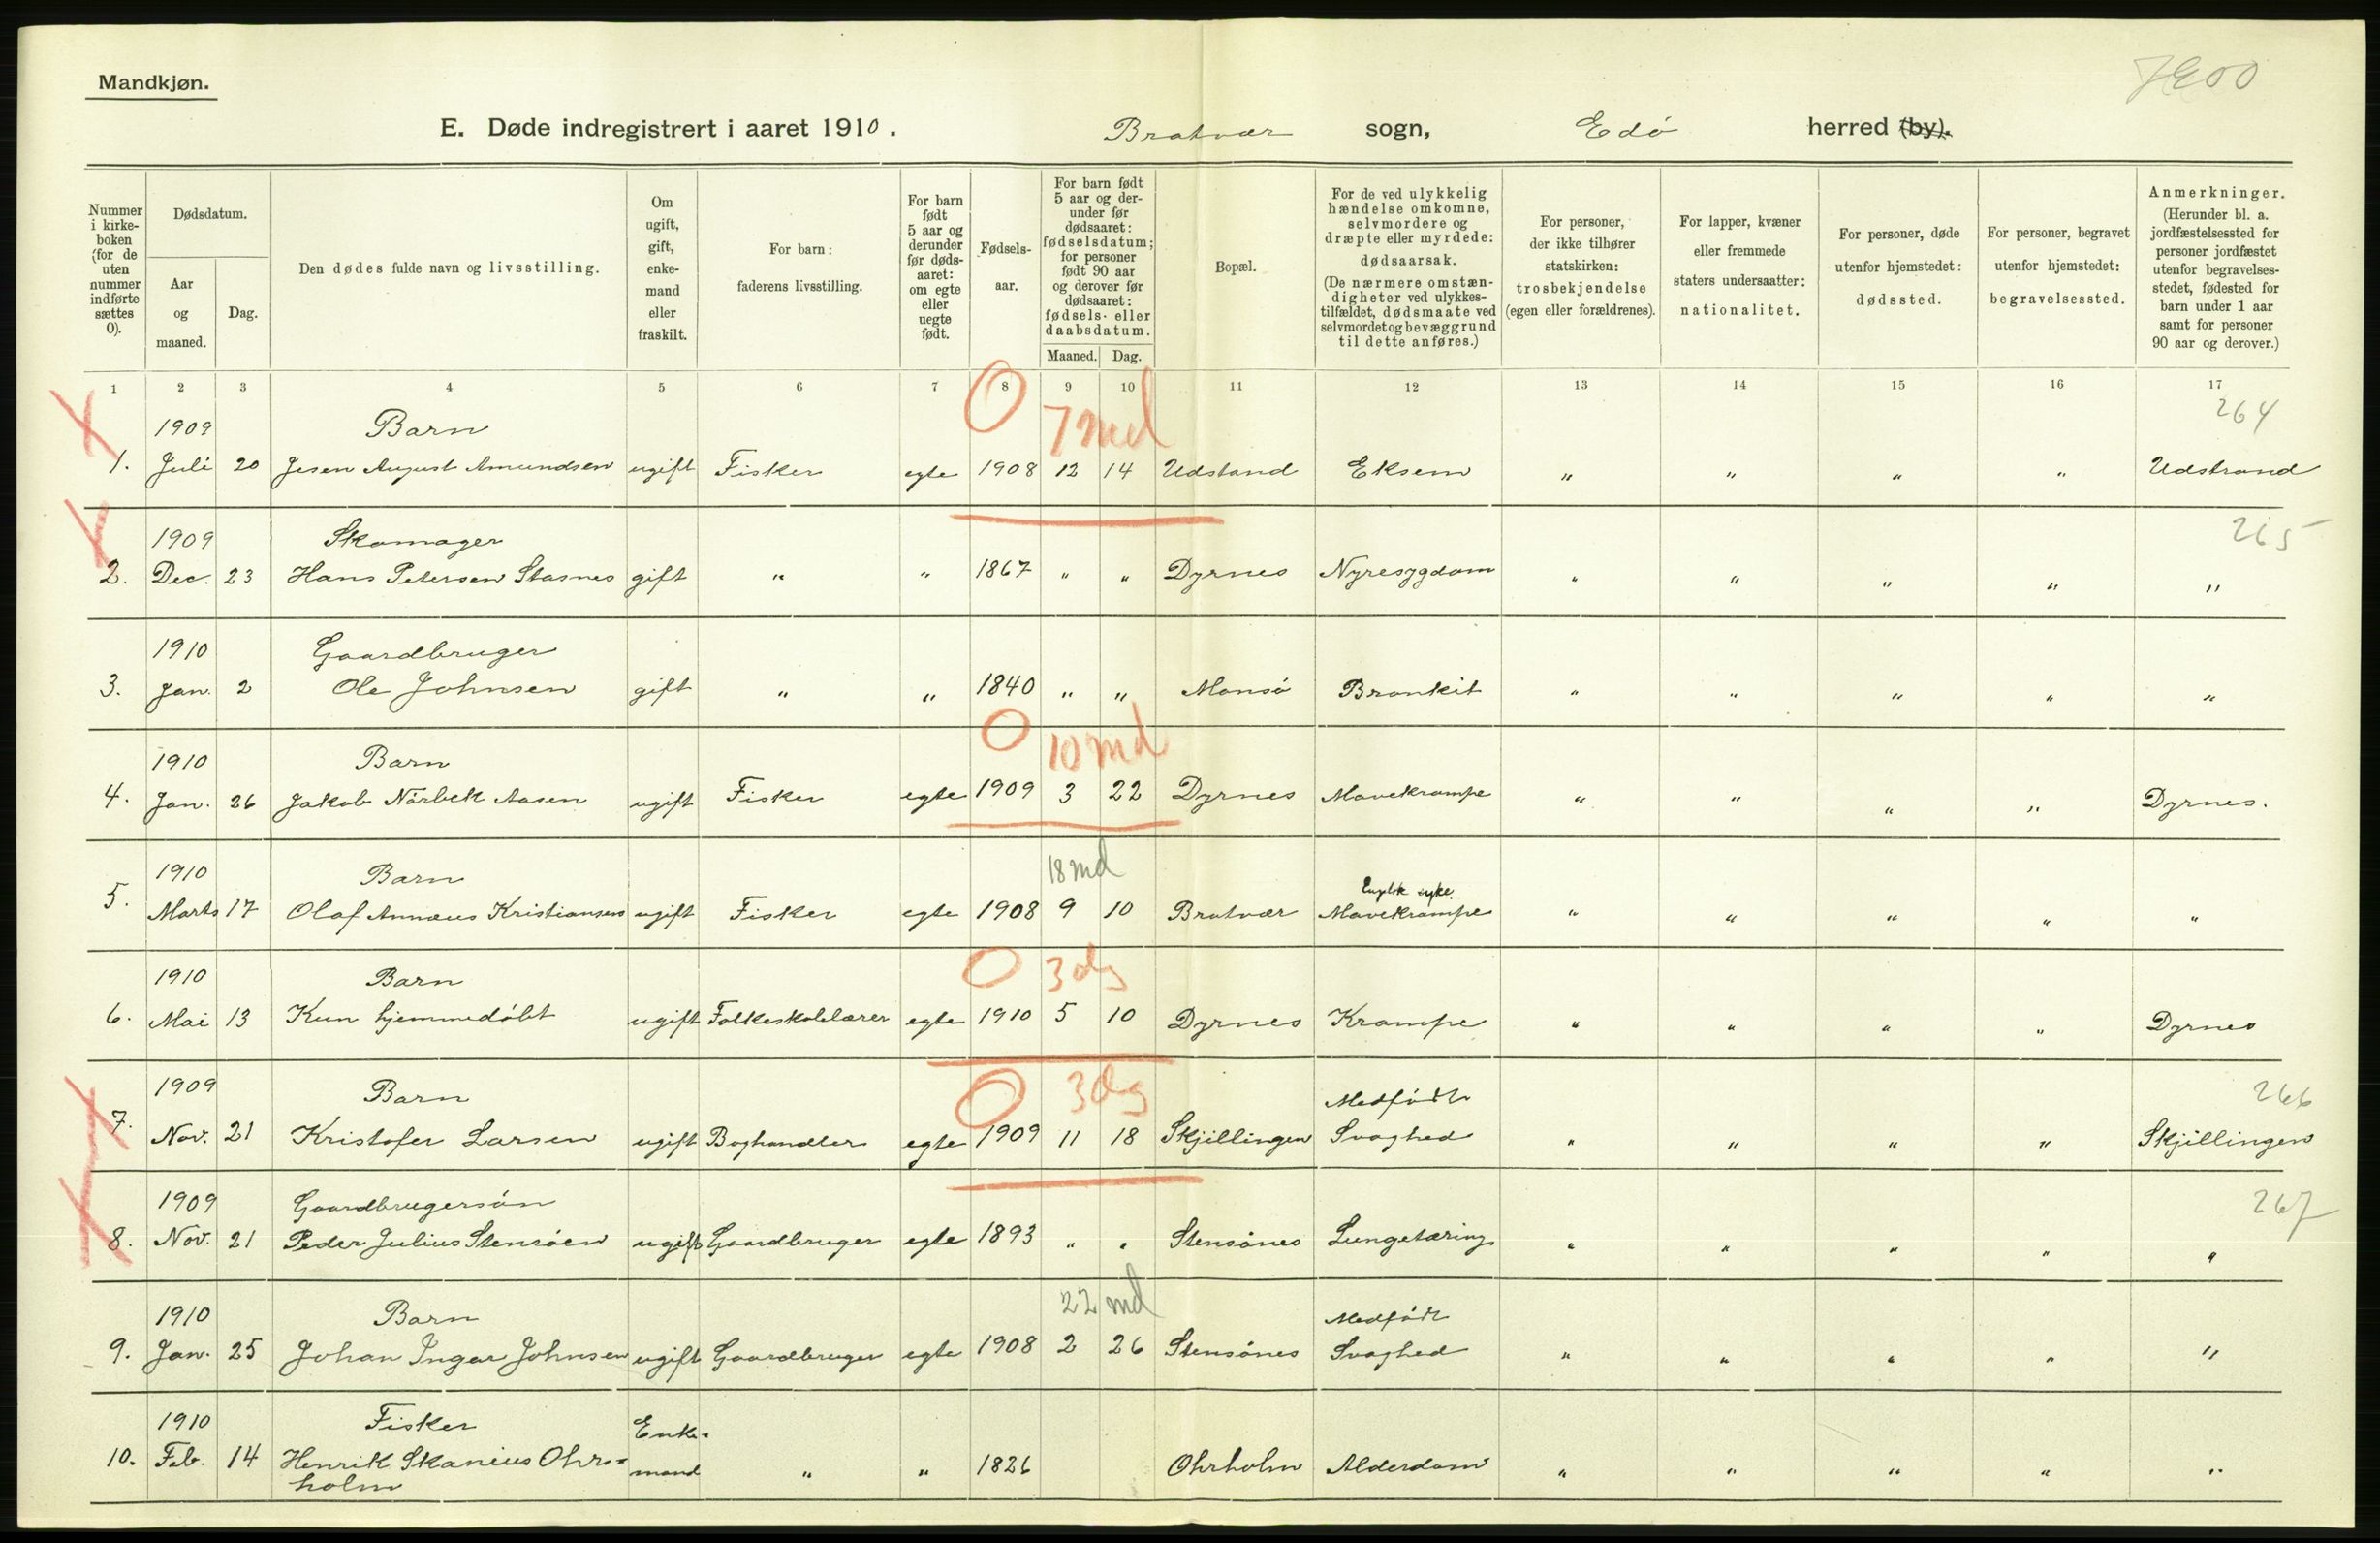 Mandkjøn.
7200
E. Døde indregistrert i aaret 1910. Bratvær sogn, Edö herred (by).
Nummer i kirke-boken (for de uten nummer indførte sættes 0).
Dødsdatum.
Aar og maaned.
Dag.
Den dødes fulde navn og livsstilling.
Om ugift, gift, enke-mand eller fraskilt.
For barn: faderens livsstilling.
For barn født 5 aar og derunder før døds-aaret: om egte eller uegte født.
Fødsels-aar.
For barn født 5 aar og der-under før dødsaaret: fødselsdatum; for personer født 90 aar og derover før dødsaaret: fødsels- eller daabsdatum.
Maaned. Dag.
Bopæl.
For de ved ulykkelig hændelse omkomne, selvmordere og dræpte eller myrdede: dødsaarsak.
(De nærmere omstæn-digheter ved ulykkes-tilfældet, dødsmaate ved selvmordet og bevæggrund til dette anføres.)
For personer, der ikke tilhører statskirken: trosbekjendelse (egen eller forældrenes).
For lapper, kvæner eller fremmede staters undersaatter: nationalitet.
For personer, døde utenfor hjemstedet: dødssted.
For personer, begravet utenfor hjemstedet: begravelsessted.
Anmerkninger.
(Herunder bl. a. jordfæstelsessted for personer jordfæstet utenfor begravelses-stedet, fødested for barn under 1 aar samt for personer 90 aar og derover.)
1 2 3 4 5 6 7 8 9 10 11 12 13 14 15 16 17
1909 Barn 0 7 md 264
1. Juli 20 Jesen August Amundsen ugift Fisker egte 1908 12 14 Udstand Eksem " " " " Udstrand
1909 Skomager 265
2. Dec. 23 Hans Petersen Stasnes gift " " 1867 " " Dyrnes Nyresygdom " " " " "
1910 Gaardbruger
3. Jan. 2 Ole Johnsen gift " " 1840 " " Monsö Bronkit " " " " "
1910 Barn 0 10 md
4. Jan. 26 Jakob Nörbek Aasen ugift Fisker egte 1909 3 22 Dyrnes Mavekrampe " " " " Dyrnes.
1910 Barn 18 md
5. Marts 17 Olaf Annæus Kristiansen ugift Fisker egte 1908 9 10 Bratvær Mavekrampe " " " " "
1910 Barn 0 3 dg
6. Mai 13 Kun hjemmedöbt ugift Folkeskolelærer egte 1910 5 10 Dyrnes Krampe " " " " Dyrnes
1909 Barn 0 3 dg Medfödt 266
7. Nov. 21 Kristofer Larsen ugift Boghandler egte 1909 11 18 Skjillingen Svaghed " " " " Skjillingen
1909 Gaardbrugersön 267
8. Nov. 21 Peder Julius Stensöen ugift Gaardbruger egte 1893 " " Stensönes Lungetæring " " " " "
1910 Barn 22 md Medfödt
9. Jan. 25 Johan Ingar Johnsen ugift Gaardbruger egte 1908 2 26 Stensönes Svaghed " " " " "
1910 Fisker Enke-
10. Feb. 14 Henrik Skanius Ohr= mand " " 1826 Ohrholm Alderdom " " " " "
holm